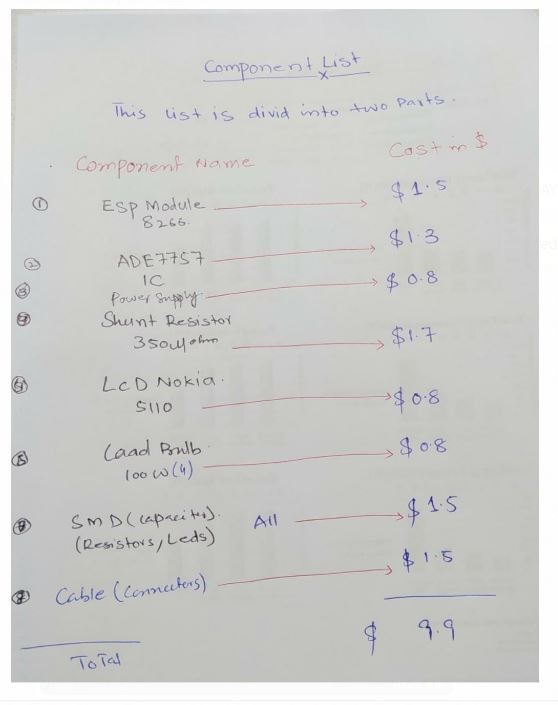 Component List
x
This list is divid into two parts.
Component Name Cost in $
① ESP Module $1.5
8266.
② ADE7757 $1.3
IC
③ Power Supply $0.8
Shunt Resistor
350μohm $1.7
LCD Nokia.
5110 $0.8
Load Bulb $0.8
100W(4)
SMD (capaciter). All $1.5
(Resistors/Leds)
Cable (Connecters) $1.5
ToTal $ 9.9